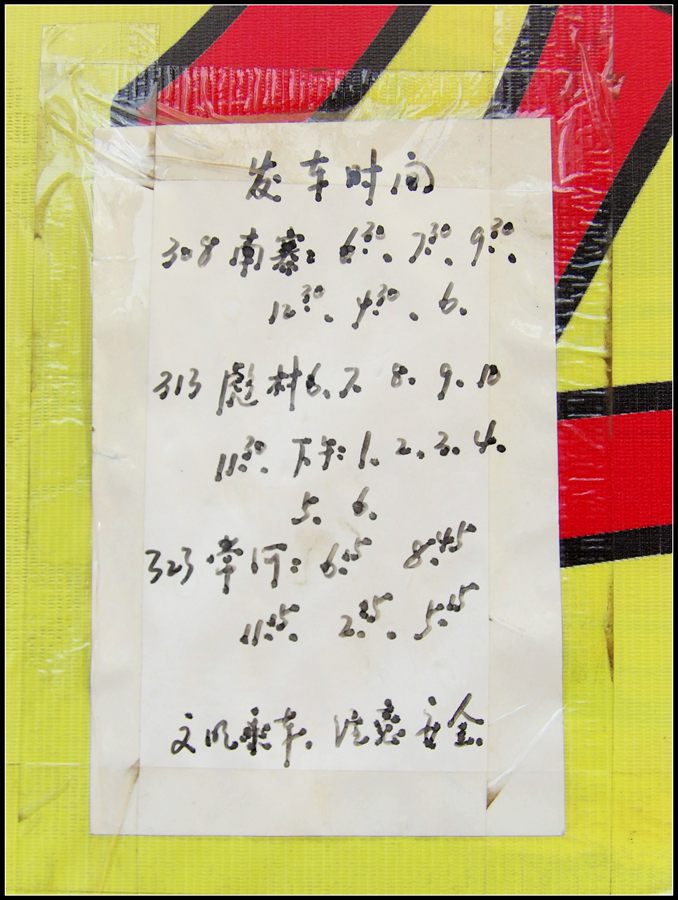 发车时间
308 南寨: 6:30、7:30、9:30、
12:30、4:30、6.
313 彪村 6、7、8、9、10
11:30、下午: 1、2、3、4、
5、6、
323 常河: 8:45
2:25、
文明乘车、注意安全